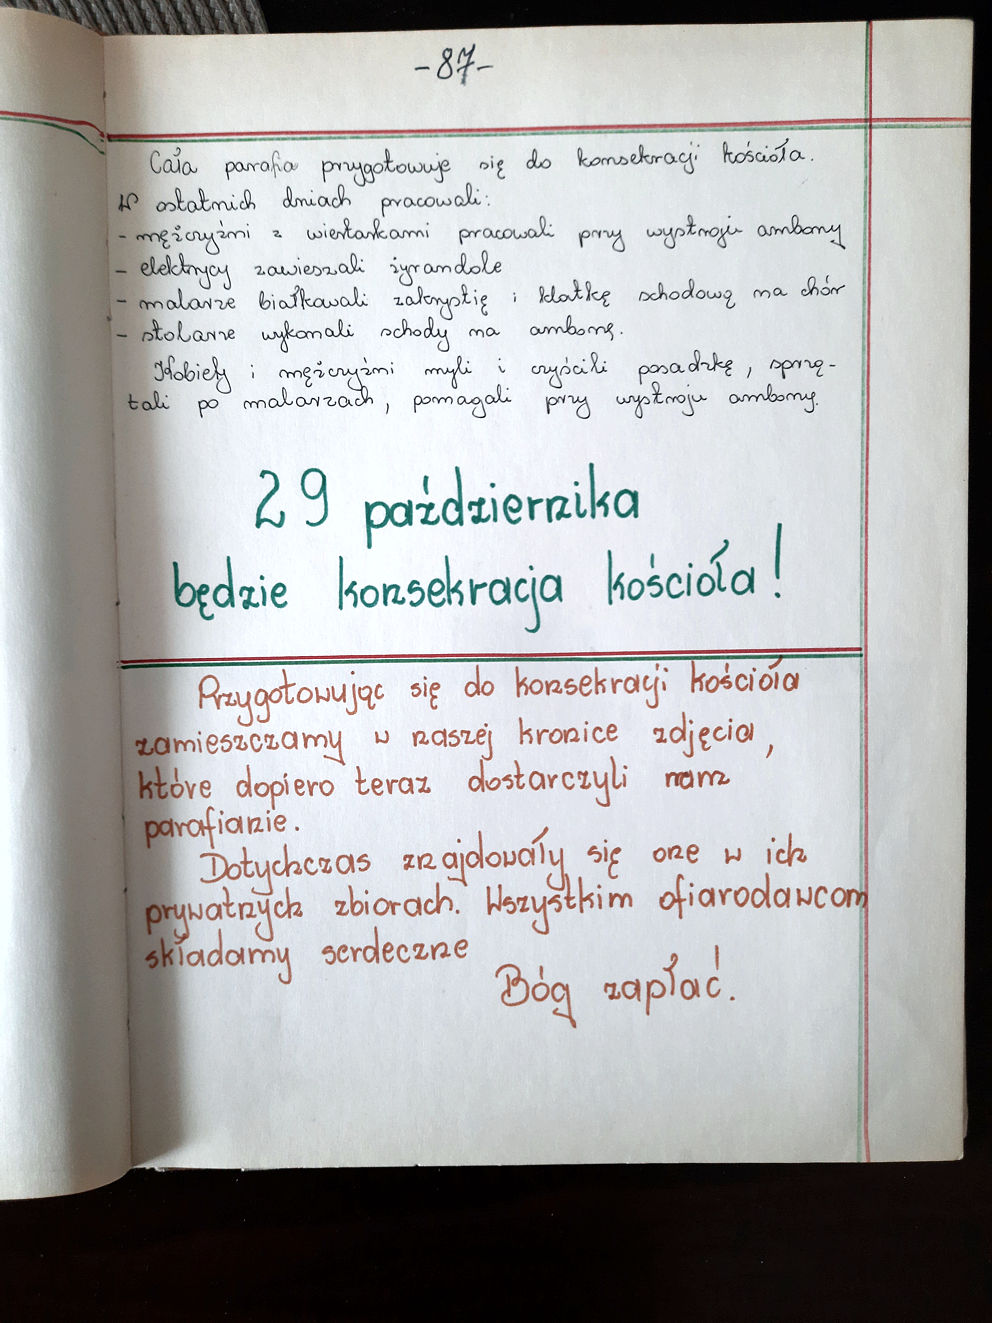 -87-
Cała parafia przygotowuje się do konsekracji kościoła.
W ostatnich dniach pracowali:
- mężczyźni z wiertarkami pracowali przy wystroju ambony
- elektrycy zawieszali żyrandole
- malarze białkowali zakrystię i klatkę schodową na chór
- stolarze wykonali schody na ambonę.
Kobiety i mężczyźni myli i czyścili posadzkę, sprzą-
tali po malarzach, pomagali przy wystroju ambony.
29 października
będzie konsekracja kościoła!
Przygotowując się do konsekracji kościoła
zamieszczamy w naszej kronice zdjęcia,
które dopiero teraz dostarczyli nam
parafianie.
Dotychczas znajdowały się one w ich
prywatnych zbiorach. Wszystkim ofiarodawcom
składamy serdeczne
Bóg zapłać.